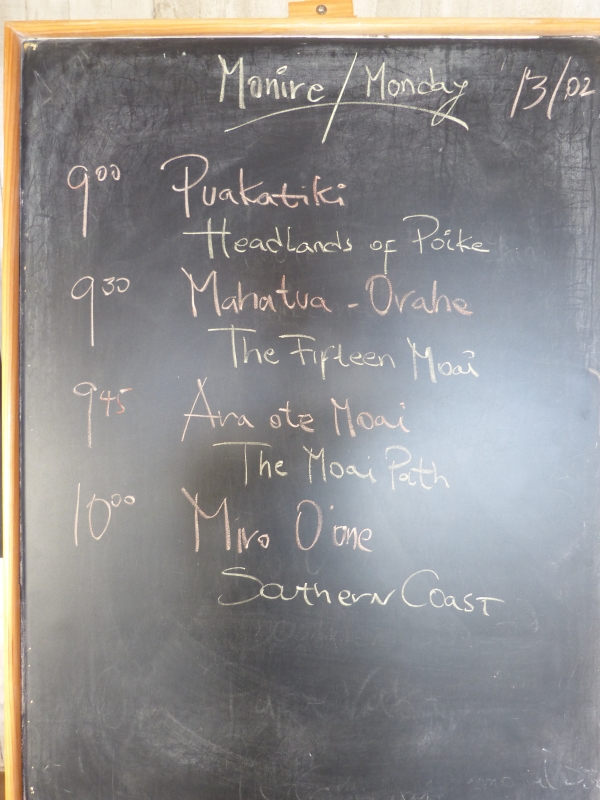 Monire/Monday 13/02
9 00 Puakatiki
Headlands of Poike
9 30 Mahatua - Ovahe
The Fifteen Moai
9 45 Ara ote Moai
The Moai Path
10 00 Miro O'one
Southern Coast